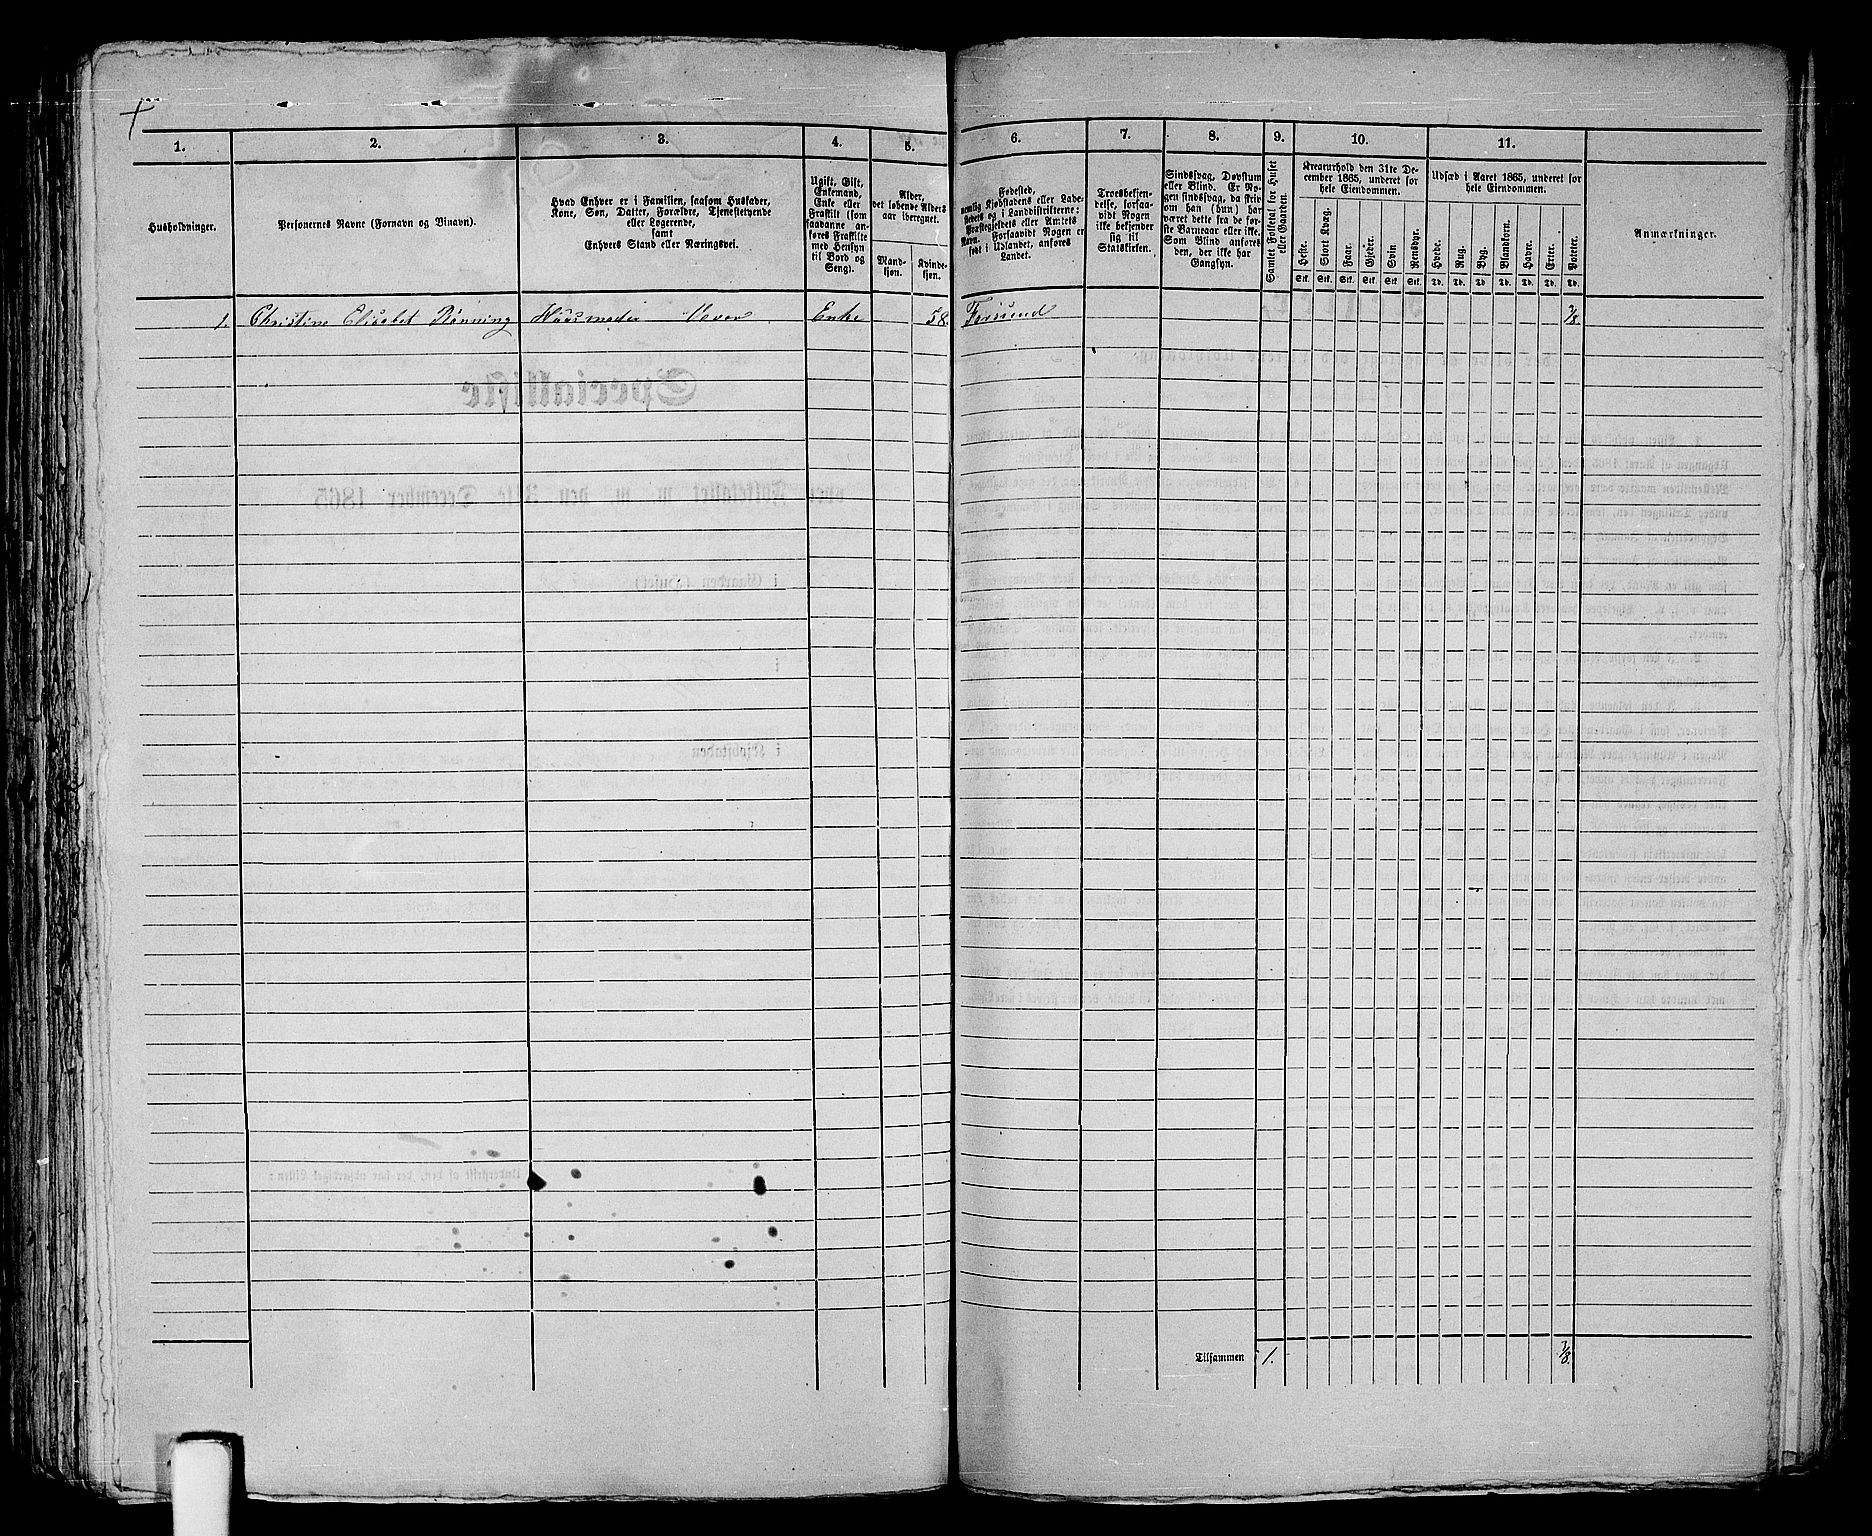 1.
2.
3.
4.
5.
6.
7.
8.
9.
10.
11.
Husholdninger.
Personernes Navne (Fornavn og Binavn).
Hvad Enhver er i Familien, saasom Husfader,
Kone, Søn, Datter, Forældre, Tjenestetyende
eller Logerende,
samt
Enhvers Stand eller Næringsvei.
Ugift, Gift,
Enkemand,
Enke eller
Fraskilt (som
saadanne an-
føres Fraskilte
med Hensyn
til Bord og
Seng).
Alder,
det løbende Alders-
aar iberegnet.
Mand-
kjøn.
Kvinde-
kjøn.
Fødested,
nemlig Kjøbstadens eller Lade-
stedets og i Landdistrikterne:
Præstegjeldets eller Amtets
Navn. Forsaavidt Nogen er
født i Udlandet, anføres
Landet.
Troesbekjen-
delse, forsaa-
vidt Nogen
ikke bekjender
sig til
Statskirken.
Sindssvag, Døvstum
eller Blind. Er No-
gen sindssvag, da skriv
om han (hun) har
været dette fra de før-
ste Barneaar eller ikke.
Som Blind anføres
den, der ikke har
Gangsyn.
Samlet Folketal for Huset
eller Gaarden.
Kreaturhold den 31te De-
cember 1865, underet for
hele Eiendommen.
Heste.
Stort Kvæg.
Faar.
Gjeder.
Svin
Rensdyr.
Stk. Stk. Stk. Stk. Stk Stk.
Udsæd i Aaret 1865, underet for
hele Eiendommen.
Hvede.
Rug.
Byg.
Blandkorn.
Havre.
Erter.
Potter.
Td. Td. Td Td. Td. Td. Td.
Anmærkninger.
1. Christine Elisabet Rönning Huusmoder Enke 58. Farsund 1/8.
Tilsammen 1. 1/8.